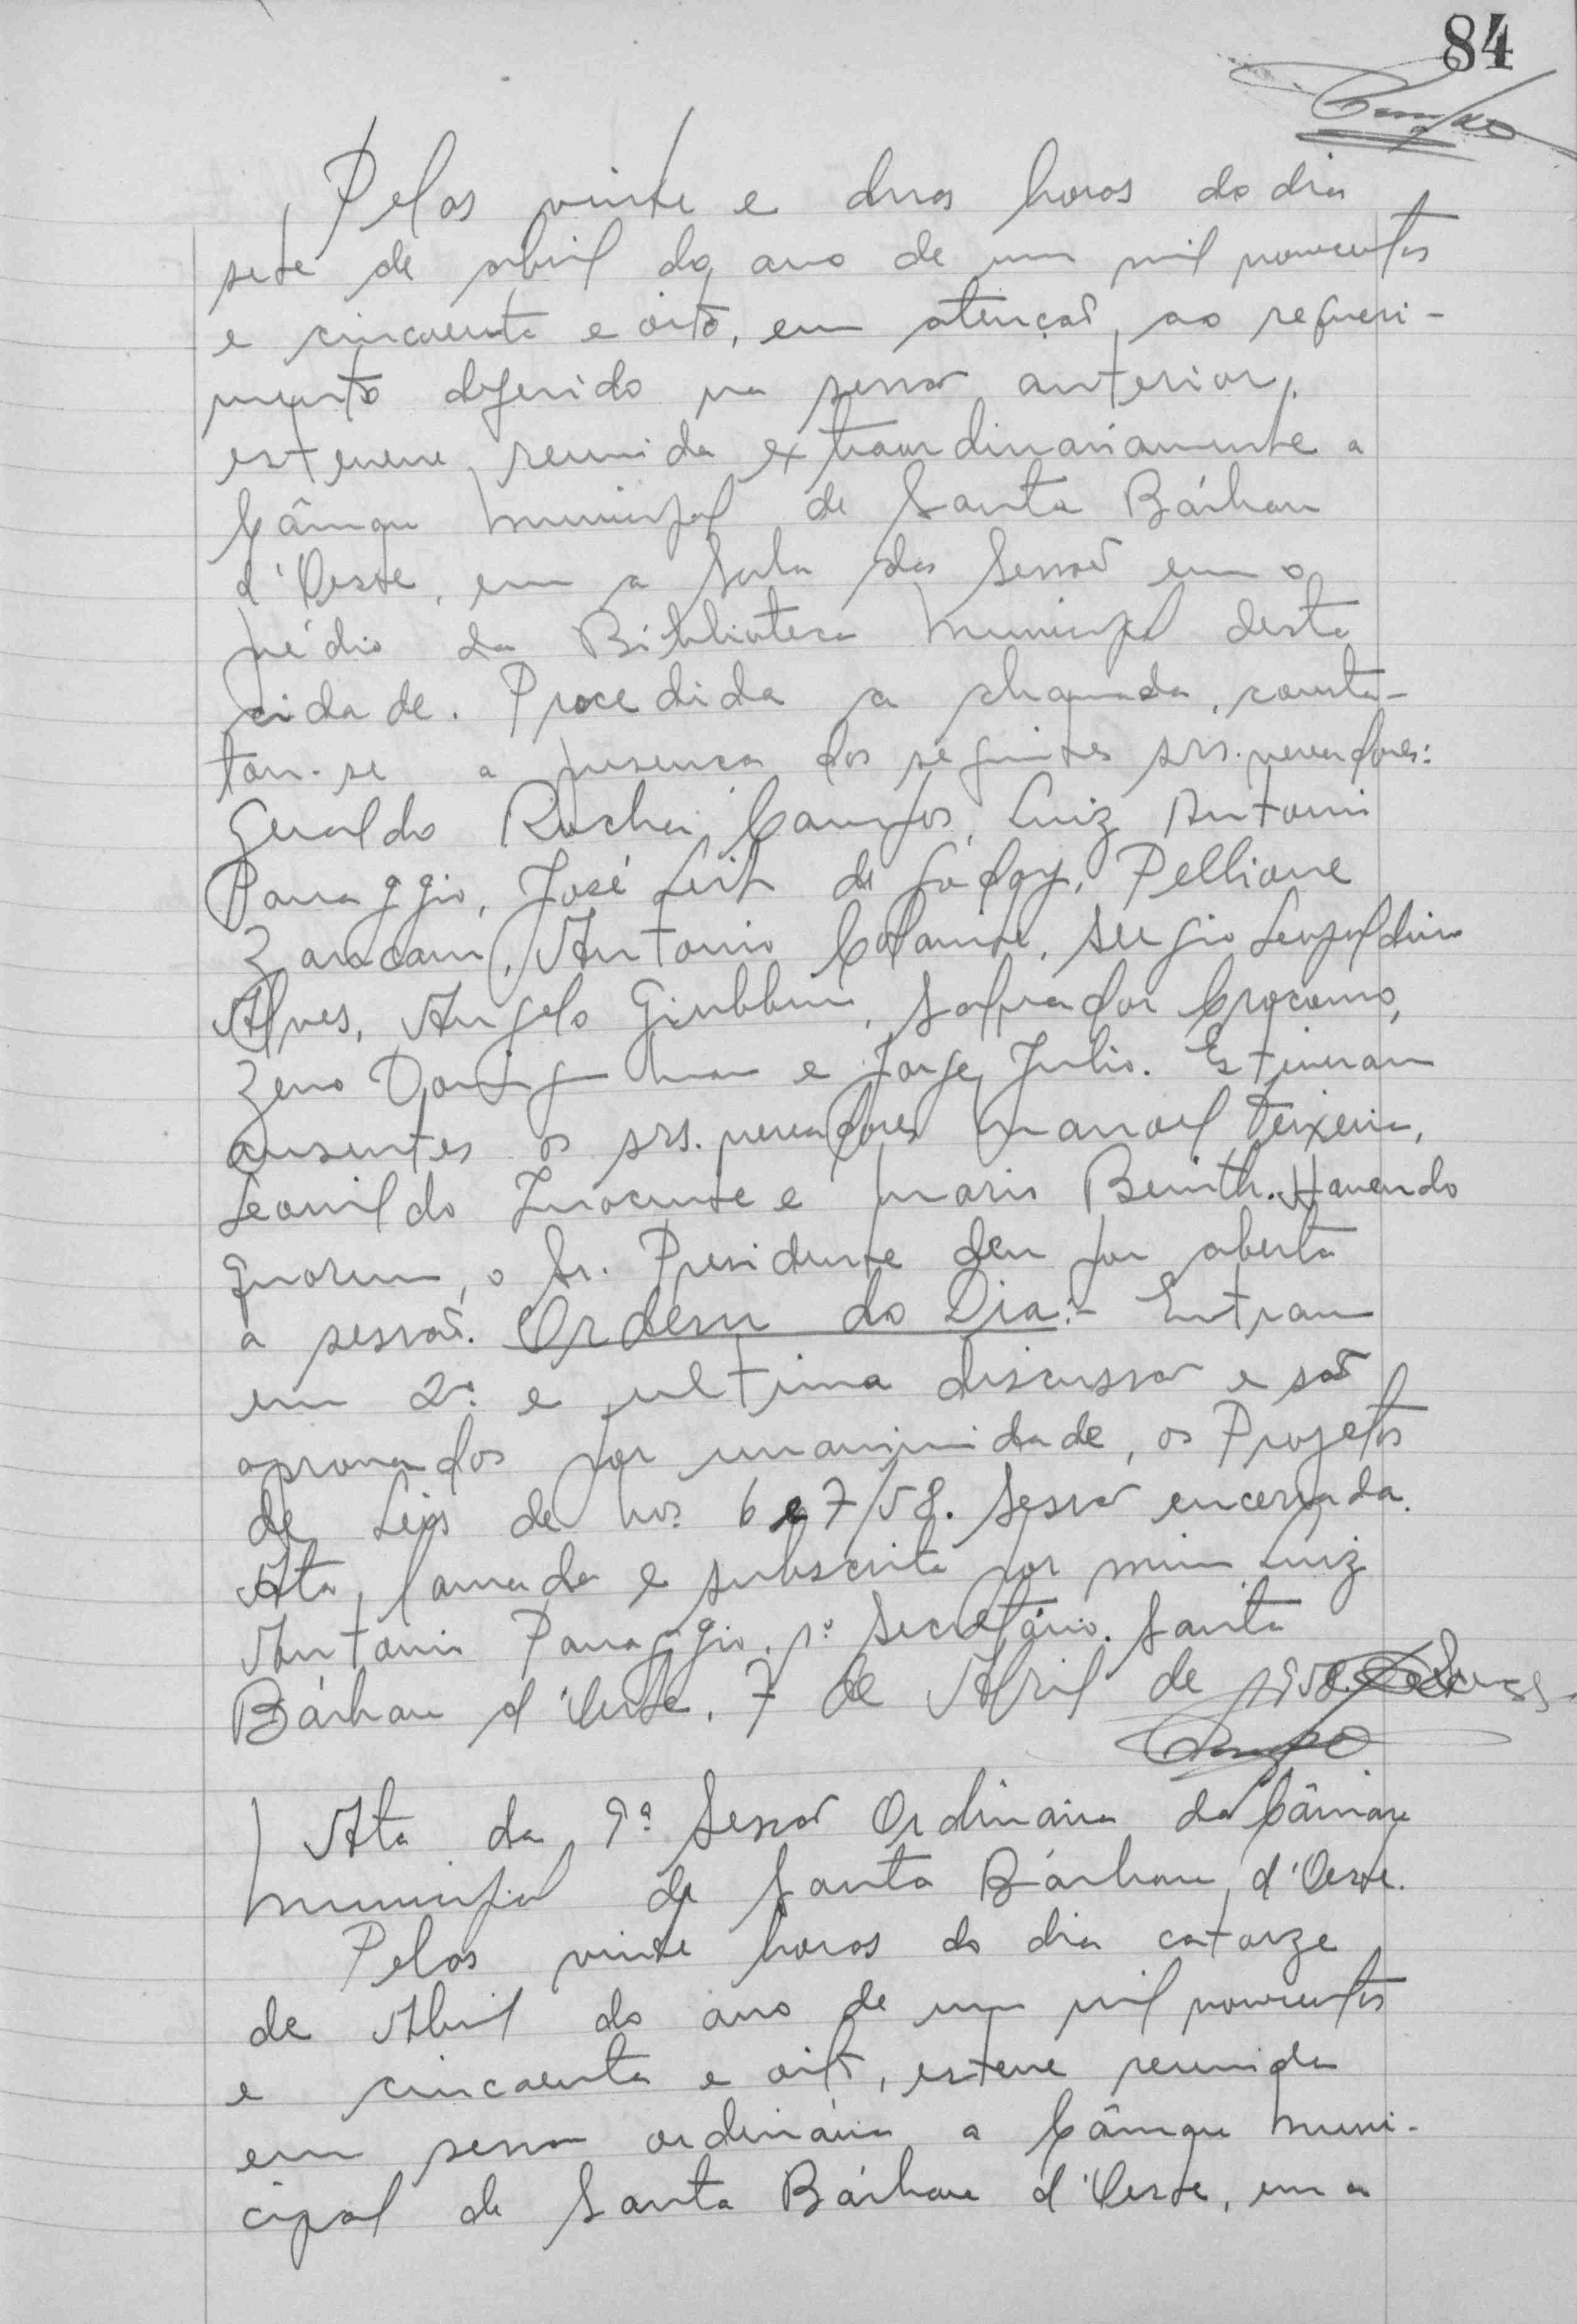 84
Pelas vinte e duas horas do dia
sete de abril do ano de um mil novecentos
e cincoenta e oito, em atenção, ao requeri-
mento deferido na sessão anterior,
esteve reunida extraordinariamente a
Câmara Municipal de Santa Bárbara
d'Oeste, em a Sala das Sessões em o
prédio da Biblioteca Municipal desta
cidade. Procedida a chamada, consta-
tou-se a presença dos seguintes srs. vereadores:
Geraldo Rocha Campos, Luiz Antonio
Panaggio, José Leite de Godoy, Pellione
Antonio Sergio Leopoldino
Alves, Angelo Giubbina, Salvador
Zeno e Jorge Julio. Estiveram
ausentes os srs. vereadores Manoel Teixeira,
Leonildo Inocente e Mario Havendo
quorum, o Sr. Presidente deu por aberta
a sessão. Ordem do Dia:- Entram
em 2ª e ultima discussão e são
aprovados por unanimidade, os Projetos
de Leis de nos. 6 e 7/58. Sessão encerrada.
Ata, lavrada e subscrita por mim Luiz
Antonio Panaggio, 1º Secretário. Santa
Bárbara d'Oeste, 7 de Abril de 1958.
Ata da 9ª Sessão Ordinária da Câmara
Municipal de Santa Bárbara d'Oeste.
Pelas vinte horas do dia catorze
de Abril do ano de um mil novecentos
e cincoenta e oito, esteve reunida
em sessão ordinária a Câmara Muni-
cipal de Santa Bárbara d'Oeste, em a